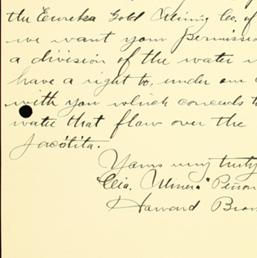 the Eureka Gold Mining Co. of
we want your permission
a division of the water
have a right to, under our
with you which concedes t
water that flow over the
Yours very truly
Cia. Minera
Howard